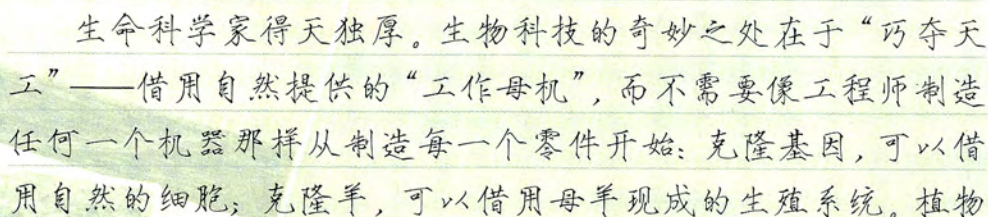 生命科学家得天独厚。生物科技的奇妙之处在于“巧夺天
工”——借用自然提供的“工作母机”，而不需要像工程师制造
任何一个机器那样从制造每一个零件开始：克隆基因，可以借
用自然的细胞；克隆羊，可以借用母羊现成的生殖系统。植物